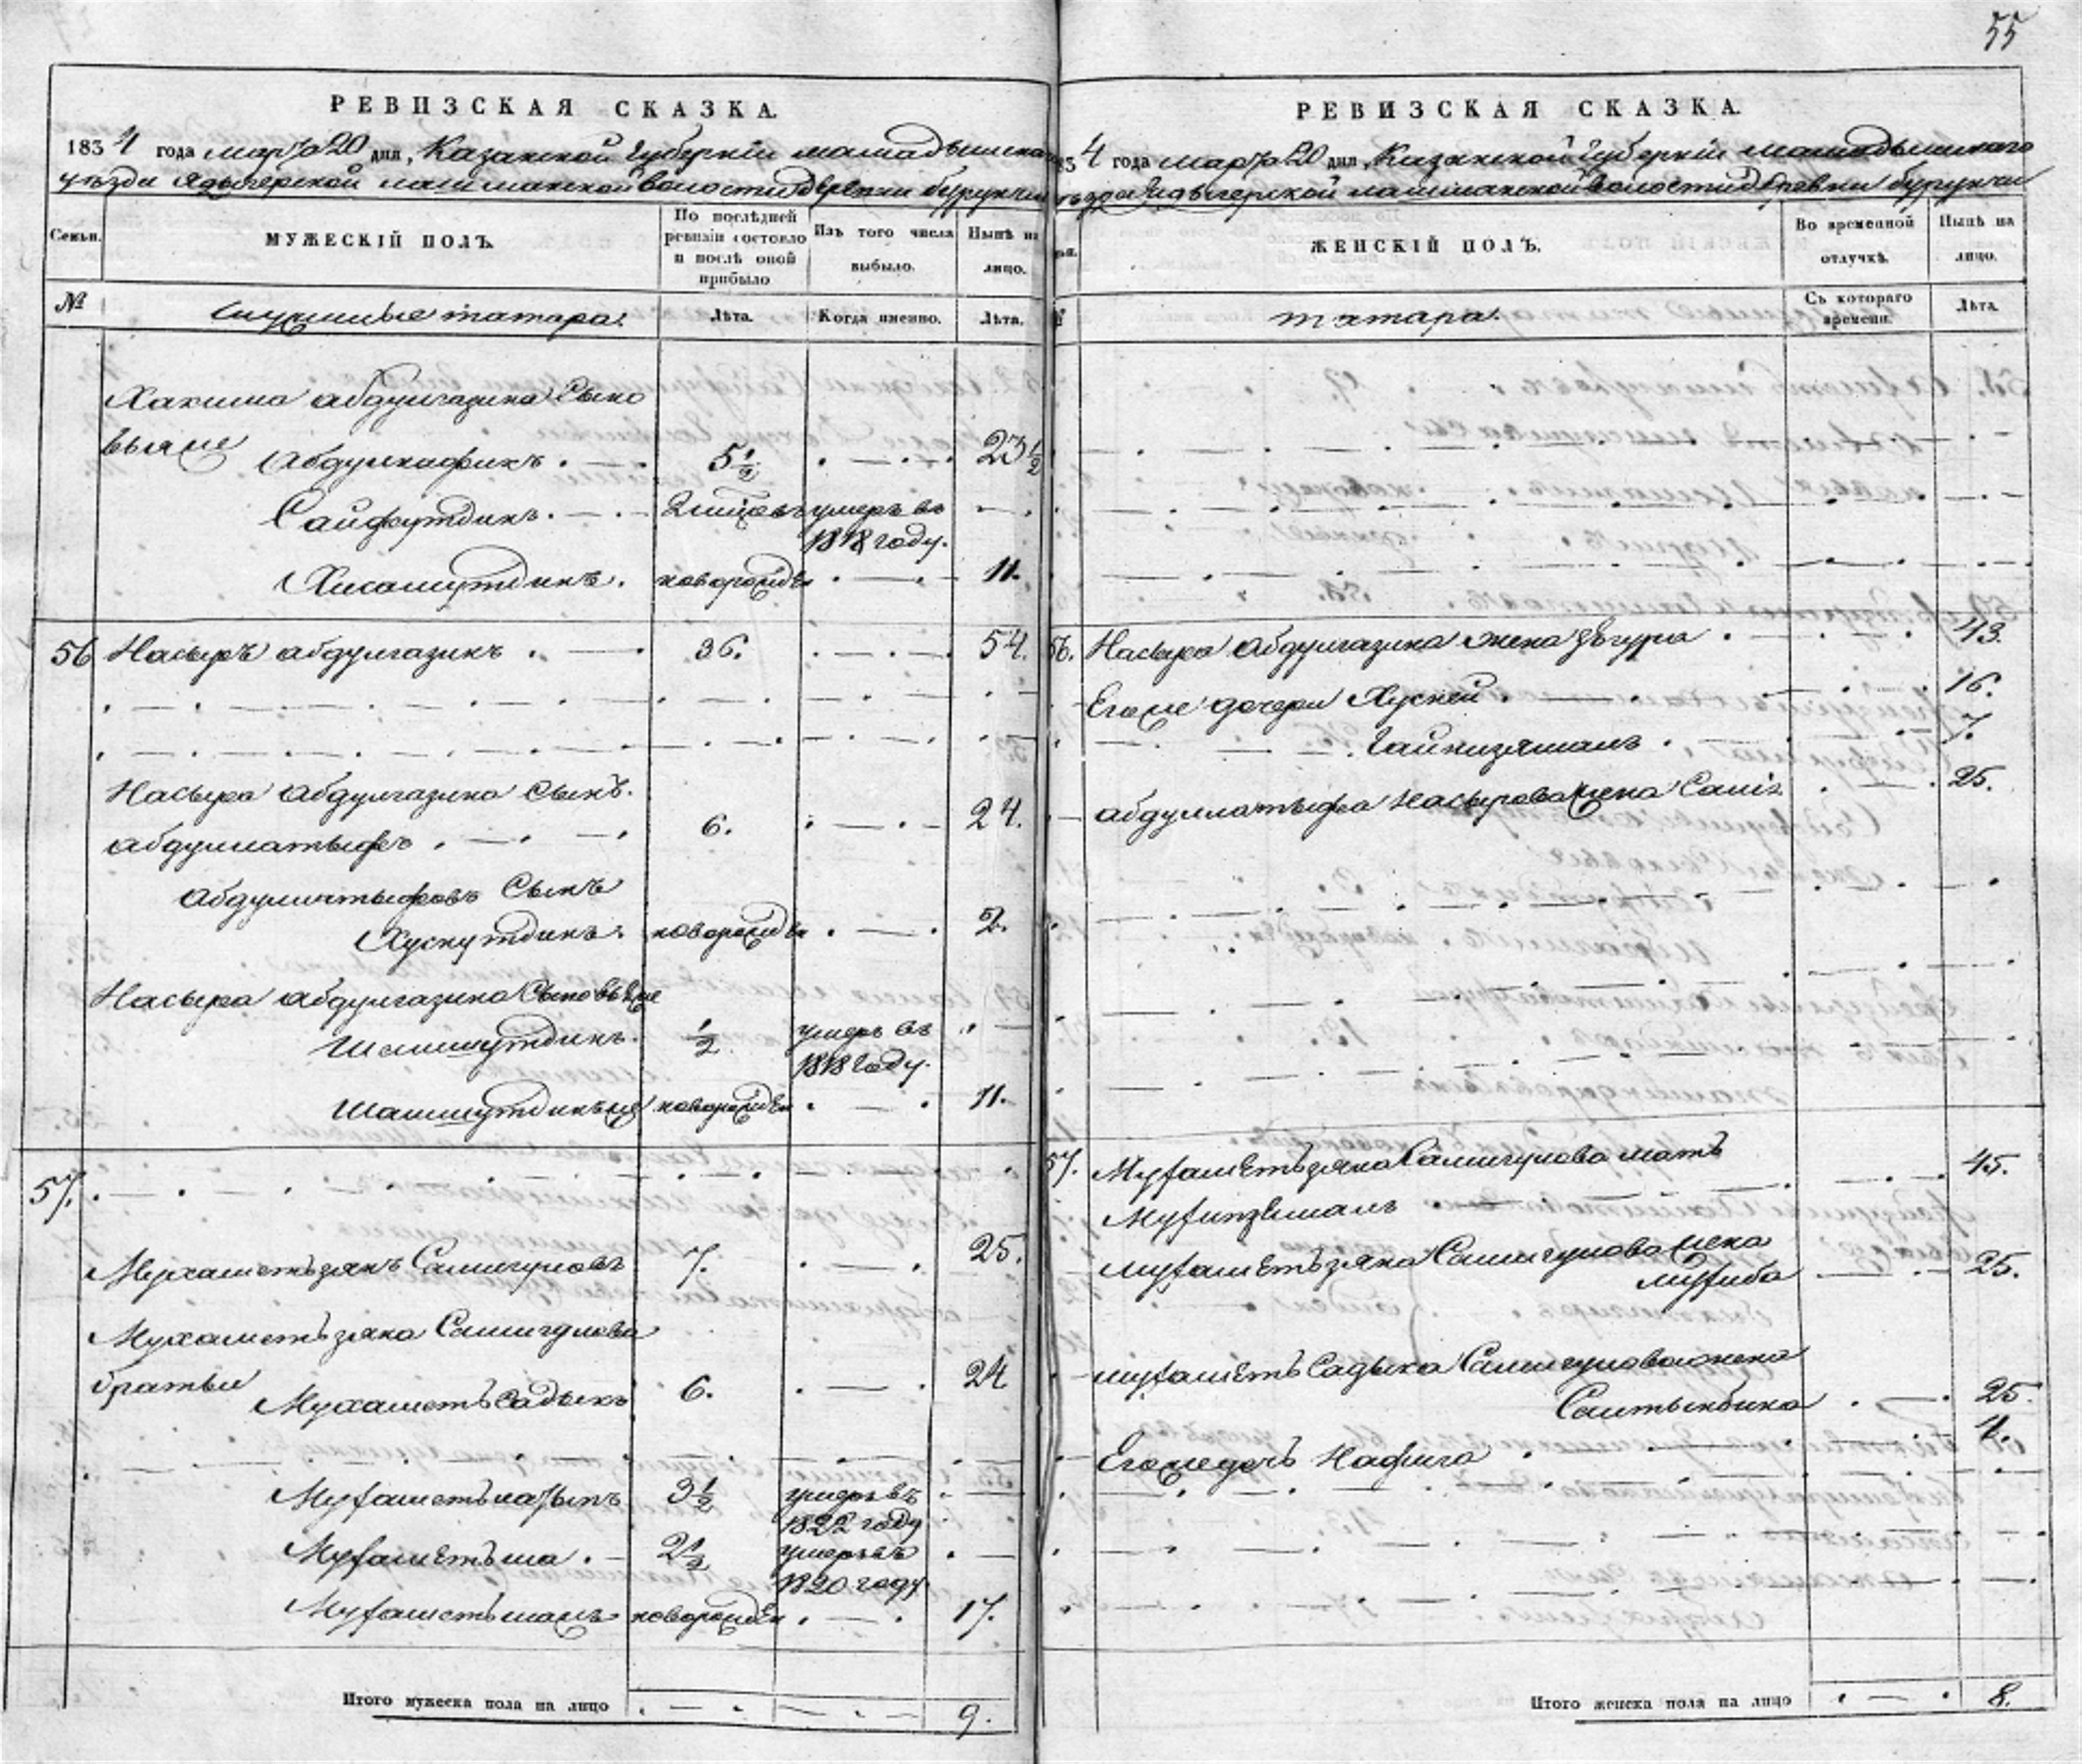 55
РЕВИЗСКАЯ СКАЗКА.
1834 года марта 20 дня, Казанской Губернии мамадышска
уезда Ядыгерской лашманской волости деревни бурунчи
Семьи.
МУЖЕСКІЙ ПОЛЪ.
По послѣдней ревизіи состояло и послѣ оной прибыло
Изъ того числа выбыло.
Нынѣ на лицо.
№
служилые татара.
Лѣта.
Когда именно.
Лѣта.
Хакима абдулгазина Сыно
вья же Абдулнафикъ 5 1/2 23 1/2
Сайфутдинъ 2 умеръ въ
1818 году.
Хисамутдинъ. новорожден 11.
56 Насыръ абдулгазинъ 36. 54.
Насыра абдулгазина Сынъ.
абдуллатыфъ 6. 24.
абдуллатыфовъ Сынъ
Хуснутдинъ. новорожден 2.
Насыра абдулгазина Сыновья же
Шамшутдинъ. 1/2 умеръ въ
1818 году.
Шамшутдинъ же новорожден 11.
57.
Мухаметъзянъ Самигуловъ 7. 25.
Мухаметъзяна Самигулова
братья Мухаметъ Садыкъ 6. 24
Мухаметъназыпъ 3 1/2 умеръ въ
1822 году
Мухаметъша 2 1/2 умеръ въ
1820 году
Мухаметъшахъ новорожден 17.
Итого мужеска пола на лицо 9.
РЕВИЗСКАЯ СКАЗКА.
1834 года марта 20 дня, Казанской Губернии мамадышского
уезда Ядыгерской лашманской волости деревни бурунчи
ЖЕНСКІЙ ПОЛЪ.
Во временной отлучкѣ.
Нынѣ на лицо.
татара.
Съ котораго времени.
Лѣта.
56. Насыра абдулгазина жена Зѣгура 43.
Его же дочери Хусней 16.
Гайнизямалъ 7.
абдуллатыфа Насырова жена 25.
57. Мухаметъзяна Самигулова мать 45.
Мухипзямалъ
мухаметъзяна Самигулова жена
мухиба 25.
мухаметъ Садыка Самигулова жена
Салтыкбика 25.
Его же дочь Нафига 4.
Итого женска пола на лицо 8.